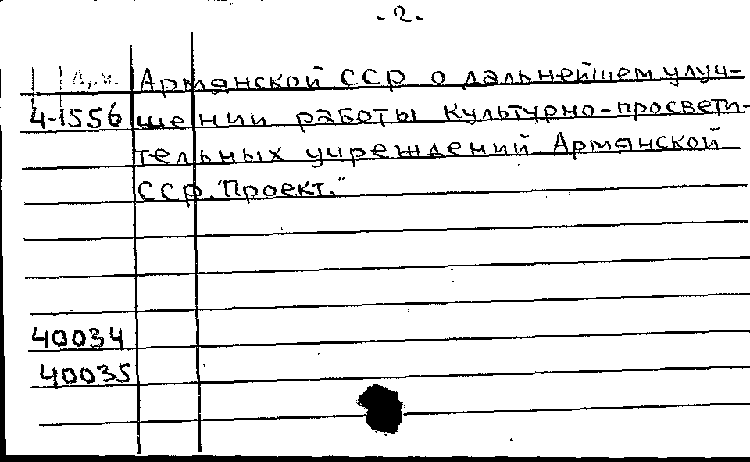 -2.-
Арм. Армянской ССР о дальнейшем улуч-
4-1556 шении работы культурно-просвети-
тельных учреждений Армянской
ССР. "Проект."
40034
40035